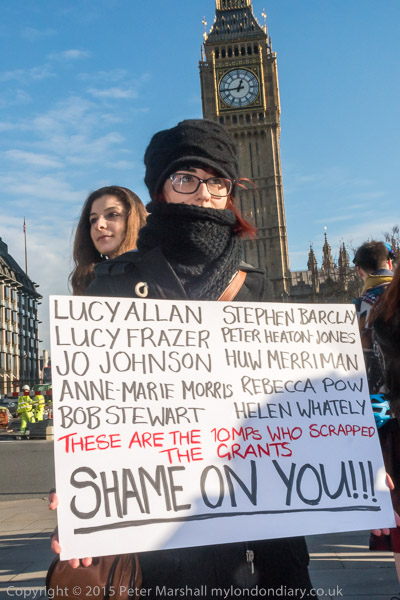 LUCY ALLAN STEPHEN BARCLAY
LUCY FRAZER PETER HEATON-JONES
JO JOHNSON HUW MERRIMAN
ANNE-MARIE MORRIS REBECCA POW
BOB STEWART HELEN WHATELY
THESE ARE THE 10MPS WHO SCRAPPED
THE GRANTS
SHAME ON YOU!!!
Copyright © 2015 Peter Marshall mylondondiary.co.uk